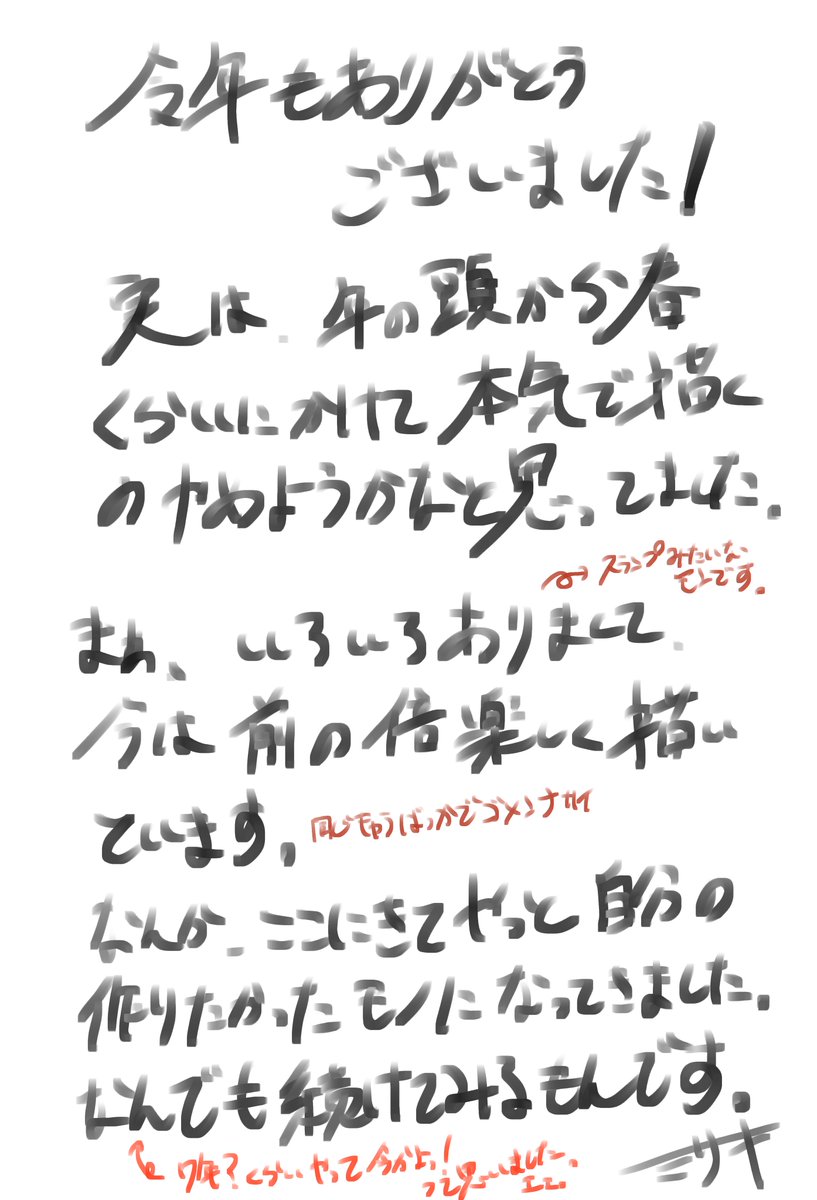 今年もありがとう
ございました!
実は、年の頭から春
くらいにかけて本気で描く
のやめようかなと思ってました。
→スランプみたいな
モンです。
まぁ、いろいろありまして、
今は前の倍楽しく描い
ています。
同じもうばっかでゴメンナサイ
なんか、ここにきてやっと自分の
作りたかったモノになってきました。
なんでも続けてみるもんです。
7年?くらいやって今かよ!
って思いました
ミリヤ